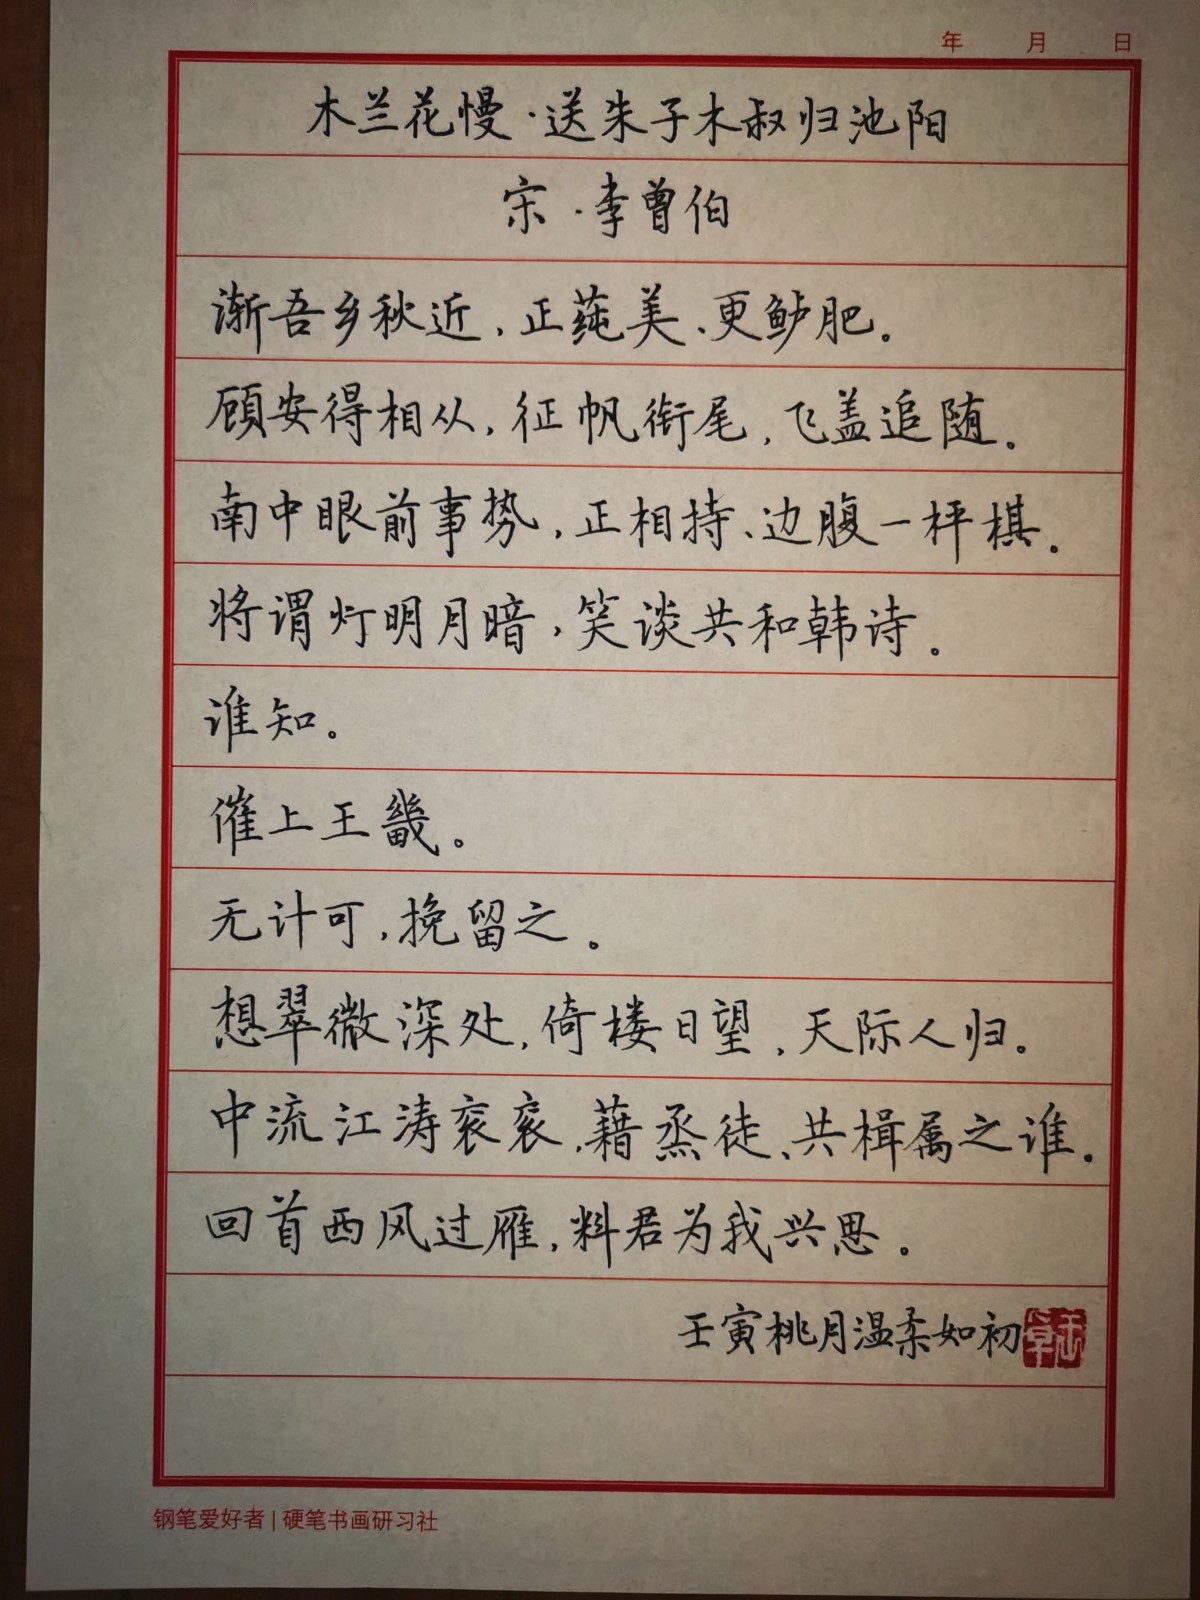 年 月 日
木兰花慢·送朱子木叔归池阳
宋·李曾伯
渐吾乡秋近，正莼美、更鲈肥。
顾安得相从，征帆衔尾，飞盖追随。
南中眼前事势，正相持、边腹一枰棋。
将谓灯明月暗，笑谈共和韩诗。
谁知。
催上王畿。
无计可，挽留之。
想翠微深处，倚楼日望，天际人归。
中流江涛衮衮，藉烝徒、共楫属之谁。
回首西风过雁，料君为我兴思。
壬寅桃月温柔如初
钢笔爱好者 | 硬笔书画研习社